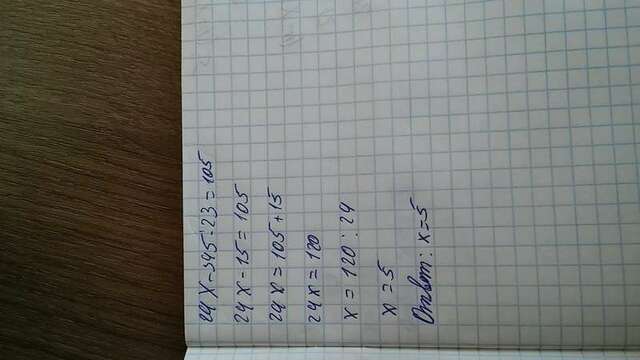 24x-345:23=105
24x-15=105
24x=105+15
24x=120
x=120:24
x=5
Ответ: x=5